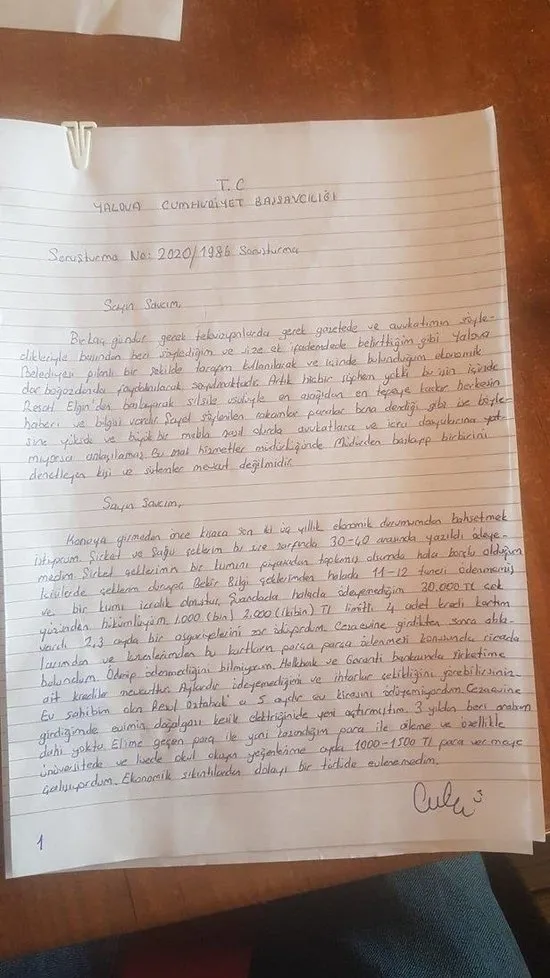 T.C
YALOVA CUMHURİYET BAŞSAVCILIĞI
Soruşturma No: 2020/1986 Soruşturma
Sayın Savcım,
Birkaç gündür gerek televizyonlarda gerek gazetede ve avukatımın söyle-
dikleriyle başından beri söylediğim ve size ek ifademdede belirttiğim gibi Yalova
Belediyesi planlı bir şekilde tarafım kullanılarak ve içinde bulunduğum ekonomik
dar boğazdanda faydalanılarak soyulmaktadır. Artık hiçbir şüphem yokki bu işin içinde
Resat Elgin'den başlayarak silsile usulüyle en aşağıdan en tepeye kadar herkesin
haberi ve bilgisi vardır. Şayet söylenilen rakamlar paralar bana dendiği gibi ise böyle-
sine yüksek ve büyük bir mebla nasıl olurda avukatlara ve icra dosyalarına yat-
mıyorsa anlaşılamaz. Bu mali hizmetler müdürlüğünde Müdürden başlayıp birbirini
denetleyen kişi ve sistemler mevcut değilmidir.
Sayın Savcım,
Konuya girmeden önce kısaca son iki üç yıllık ekonomik durumumdan bahsetmek
istiyorum. Şirket ve Şahsi çeklerim bu süre zarfında 30-40 arasında yazıldı ödeye-
medim. Şirket çeklerimin bir kısmını piyasadan toplamış olsamda hala borçlu olduğum
kişilerde çeklerim duruyor. Bekir Bilgi çeklerimden halada 11-12 tanesi ödenmemiş
ve bir kısmı icralık olmuştur. halada ödeyemediğim 30.000 TL çek
yüzünden hükümlüyüm. 1.000 (bin) 2.000 (ikibin) TL limitli 4 adet kredi kartım
vardı 2,3 ayda bir asgarilerini zor ödüyordum. Cezaevine girdikten sonra abla-
larımdan ve kuzenlerimden bu kartların parça parça ödenmesi konusunda ricada
bulundum. Ödenip ödenmediğini bilmiyorum. Halkbank ve Garanti bankasında şirketime
ait krediler mevcuttur. Aylardır ödeyemediğimi ve ihtarlar çekildiğini görebilirsiniz.
Ev sahibim olan Resul 5 aydır ev kirasını ödeyemiyordum. Cezaevine
girdiğimde evimin doğalgazı kesik elektriğinide yeni açtırmıştım. 3 yıldan beri arabam
dahi yoktu. Elime geçen para ile yani kazandığım para ile aileme ve özellikle
üniversitede ve lisede okul okuyan yeğenlerime ayda 1000-1500 TL para vermeye
çalışıyordum. Ekonomik sıkıntılardan dolayı bir türlüde evlenemedim.
3
1